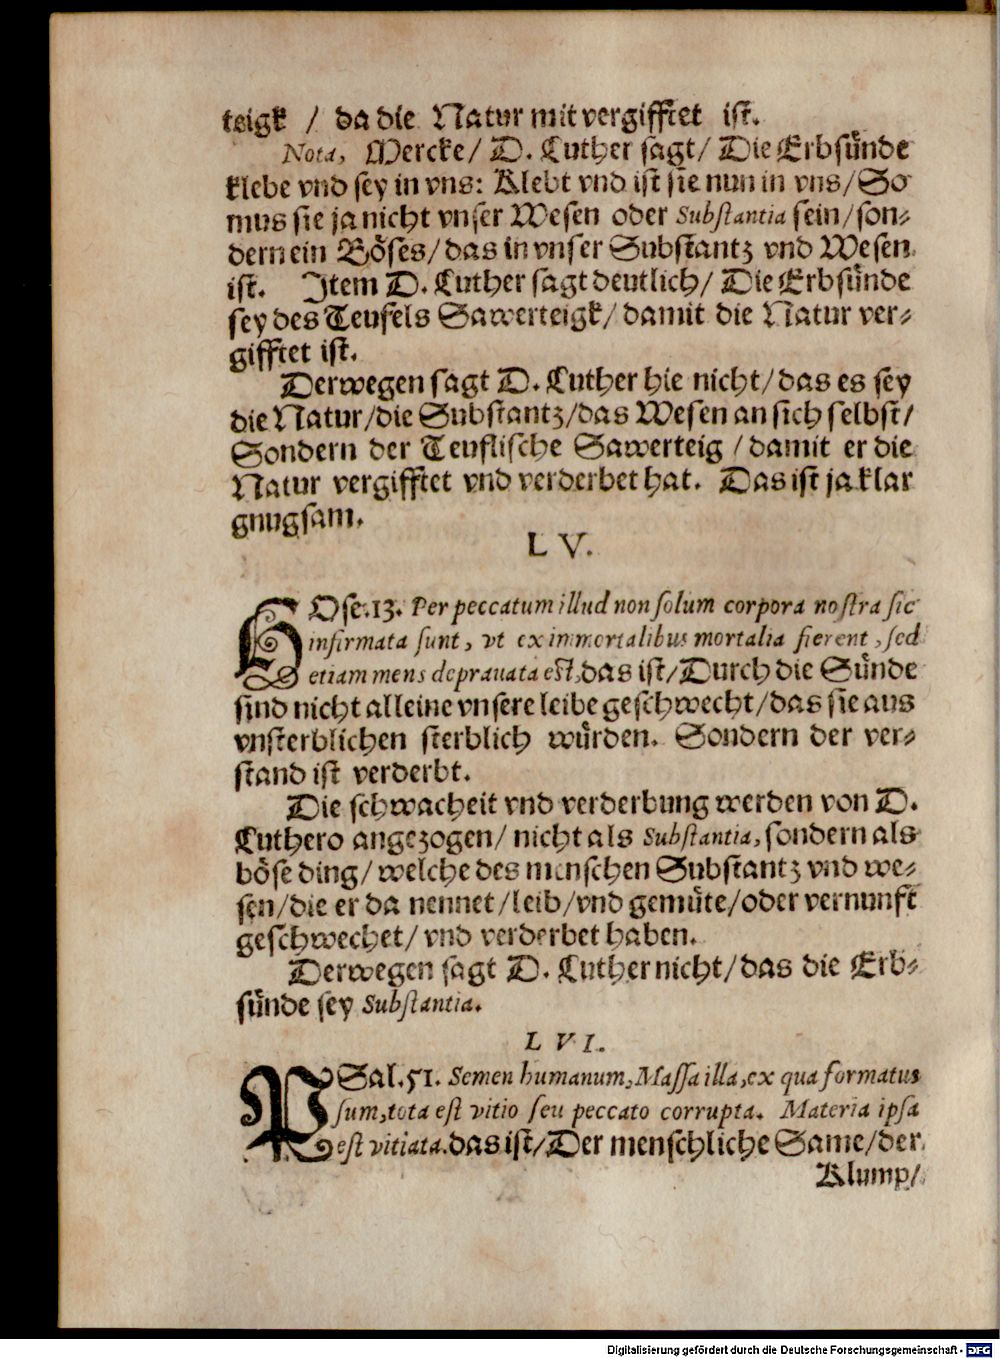 teigk / da die Natur mit vergifftet ist.
Nota, Mercke/ D. Luther sagt/ Die Erbsünde
klebe vnd sey in vns: Klebt vnd ist sie nun in vns/ So
mus sie ja nicht vnser Wesen oder Substantia sein/ son-
dern ein Böses/ das in vnser Substantz vnd Wesen
ist. Item D. Luther sagt deutlich/ Die Erbsünde
sey des Teufels Sawerteigk/ damit die Natur ver-
gifftet ist.
Derwegen sagt D. Luther hie nicht/ das es sey
die Natur/ die Substantz/ das Wesen an sich selbst/
Sondern der Teuflische Sawerteig / damit er die
Natur vergifftet vnd verderbet hat. Das ist ja klar
gnugsam.
LV.
HOse.13. Per peccatum illud non solum corpora nostra sic
infirmata sunt, vt ex immortalibus mortalia fierent, sed
etiam mens deprauata est, das ist/ Durch die Sünde
sind nicht alleine vnsere leibe geschwecht/ das sie aus
vnsterblichen sterblich würden. Sondern der ver-
stand ist verderbt.
Die schwacheit vnd verderbung werden von D.
Luthero angezogen/ nicht als Substantia, sondern als
böse ding/ welche des menschen Substantz vnd we-
sen/ die er da nennet/ leib/ vnd gemüte/ oder vernunft
geschwechet/ vnd verderbet haben.
Derwegen sagt D. Luther nicht/ das die Erb-
sünde sey Substantia.
LVI.
PSal.51. Semen humanum, Massa illa, ex qua formatus
sum, tota est vitio seu peccato corrupta. Materia ipsa
est vitiata. das ist/ Der menschliche Same/ der
Klump/
Digitalisierung gefördert durch die Deutsche Forschungsgemeinschaft - DFG